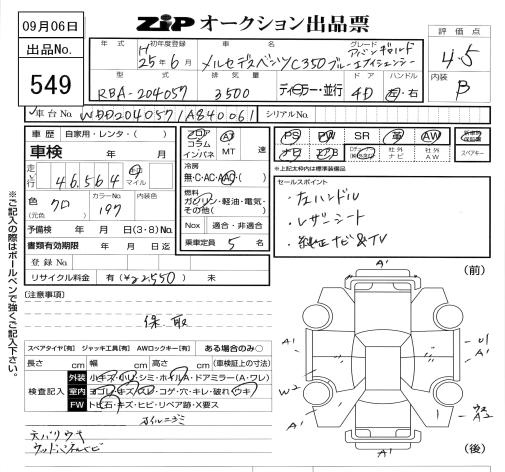 09月06日
出品No.
549
ZIP オークション出品票
評価点
4.5
内装
B
年式 初年度登録 車名 グレード
H 25年6月 メルセデスベンツC350ブルーエフィシェンシー
型式 排気量 ドア ハンドル
RBA-204057 3500 ディーラー・並行 4D 左・右
車台No. WDD2040571A840061 シリアルNo.
車歴 自家用・レンタ・( )
車検 年 月
走行 46,564 キロ マイル
色 クロ (元色) カラーNo. 197 内装色
予備検 年 月(3・8)No.
書類有効期限 年 月 日迄
登録No
リサイクル料金 有(¥22550) 未
フロア コラム インパネ AT MT 速
冷房
無・C・AC・AAC
燃料
ガソリン・軽油・電気・その他( )
Nox 適合・非適合
乗車定員 5 名
PS PW SR 革 AW
ナビ 社外ナビ 社外AW
スペアキー
*上記太枠内は成約対象
セールスポイント
・左ハンドル
・レザーシート
・純正ナビ&TV
[注意事項]
保、取
スペアタイヤ[有] ジャッキ工具[有] AWロックキー[有] ある場合のみ○
長さ cm 幅 cm 高さ cm (車検証上の寸法)
検査記入
外装 小キズ・小凹・シミ・ホイルA・ドアミラー(A・ワレ)
室内 ヨゴレ・キズ・スレ・コゲ・穴・キレ・破れ・ウキ
FW トビ石・キズ・ヒビ・リペア跡・X要ス
ホイルニゴミ
天バリウキ
ウッドパネルヒビ
※ご記入の際はボールペンで強くご記入下さい。
(前)
A'
A'
A'
W2
A'
A'
(後)